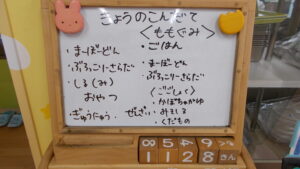 きょうのこんだて
<ももぐみ>
・まーぼーどん
・ぶろっこりーさらだ
・しる(み)
おやつ
・ぎゅうにゅう
・ぜんざい
・ごはん
・まーぼーどん
・ぶろっこりーさらだ
<ごごしょく>
・かぼちゃがゆ
・みそしる
・くだもの
8 5 4 9
1 1 2 8 きん